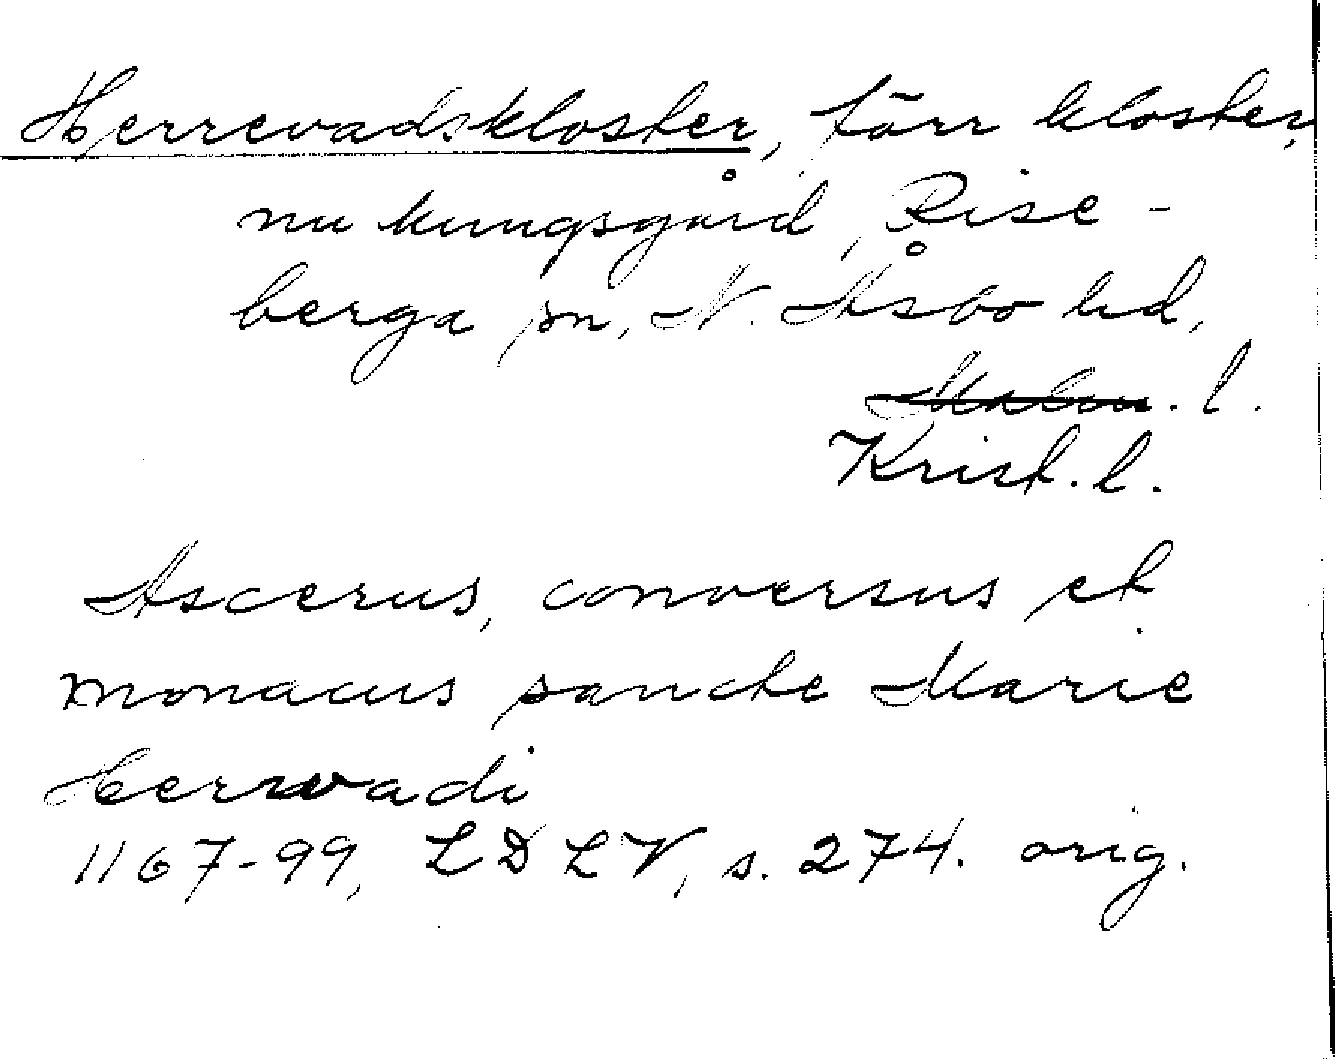 Herrevadskloster, förr kloster,
nu kungsgård, Rise-
berga sn, N. Åsbo hd,
Malm. l.
Krist. l.
Ascerus, conversus et
monacus sancte Marie
Herrevadi
1167-99, LDLV, s. 274. orig.